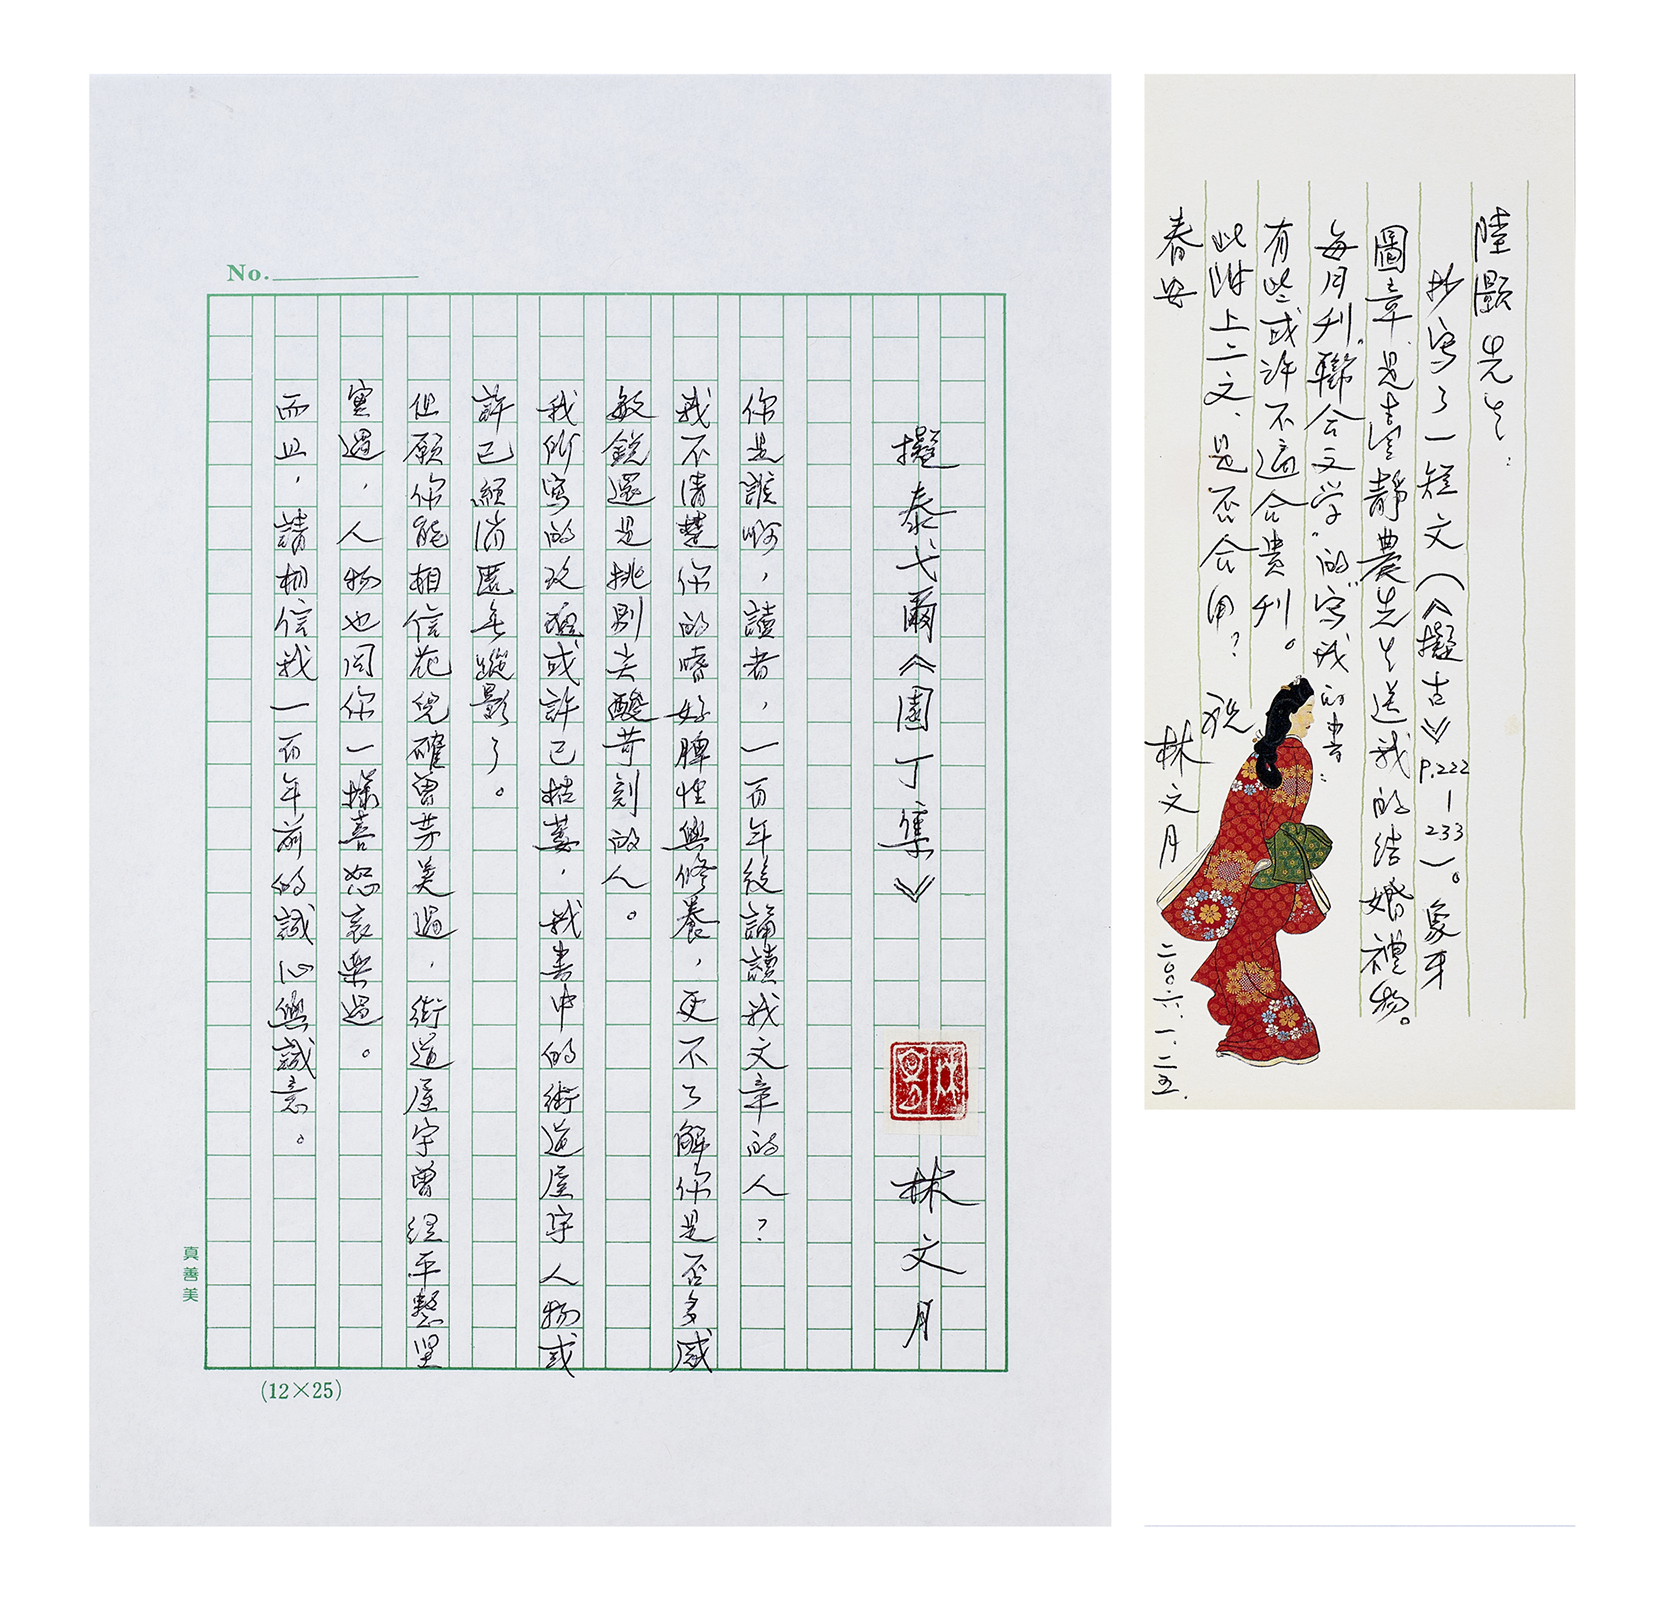 No.
擬泰戈爾《園丁集》 林文月
你是誰啊，讀者，一百年後誦讀我文章的人？
我不清楚你的嗜好脾性與修養，更不了解你是否多感
敏銳還是挑剔尖酸苛刻的人。
我所寫的玫瑰或許已枯萎，我書中的街道屋宇人物或
許已經消匿无蹤影了。
但願你能相信花兒確曾芬美過，街道屋宇曾經平整堅
實過，人物也同你一樣喜怒哀樂過。
而且，請相信我一百年前的誠心與誠意。
真善美
(12×25)
陸灝先生：
抄寫了一短文（《擬古》P.222-233）。象牙
圖章是臺靜農先生送我的結婚禮物。
每月刊“聯合文学”的“寫我的書”：
有些或許不適合貴刊。
此附上二文，是否合用？ 祝
春安
林文月
二〇〇六.一.二五.